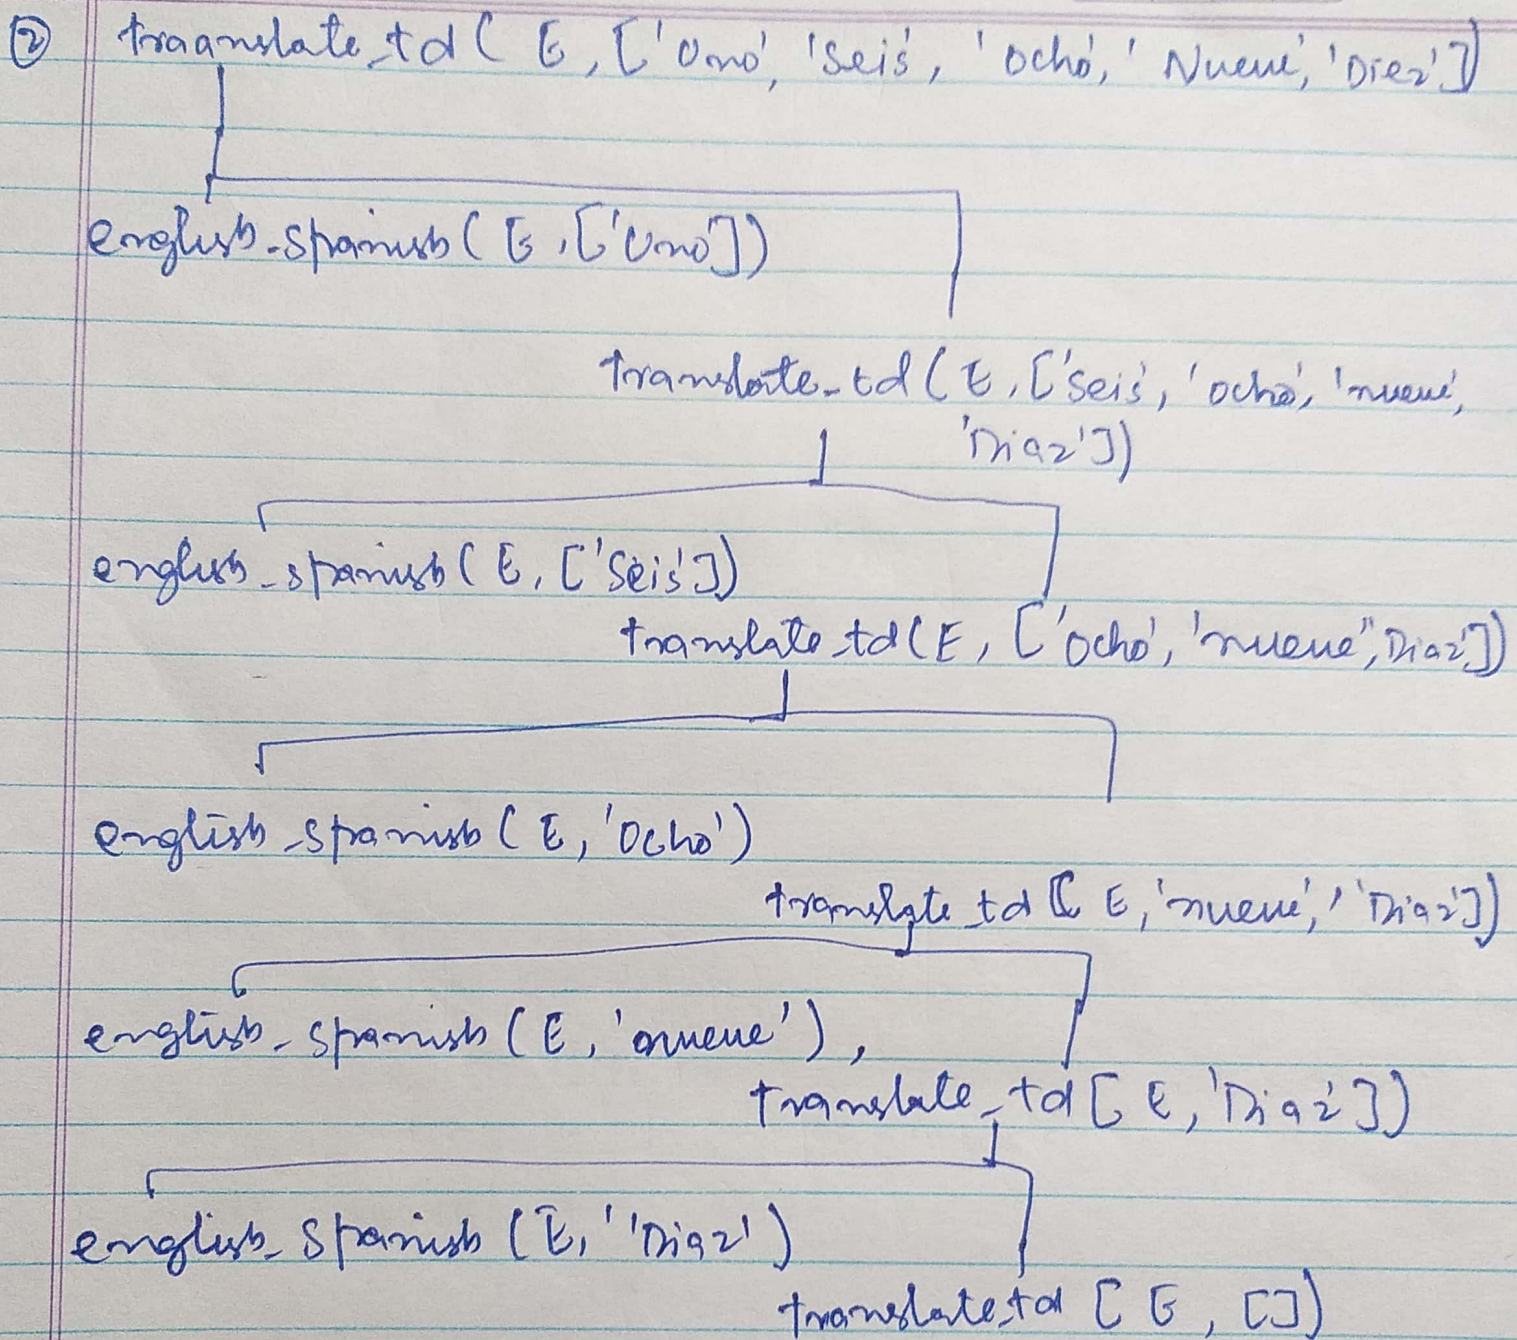 ② traanslate_td( E, ['Uno', 'Seis', 'Ocho', 'Nueve', 'Diez']
english_spanish( E, ['Uno'])
translate_td( E, ['Seis', 'ocho', 'nueve',
'Diaz'])
english_spanish( E, ['Seis'])
translate_td(E, ['Ocho', 'nueve", Diaz'])
english_spanish( E, 'Ocho')
translate_td [( E, 'nueve', 'Diaz'])
english_spanish (E, 'nueve'),
translate_td [ E, 'Diaz'])
english_spanish (E, ''Diaz')
translate_td [ E, [])